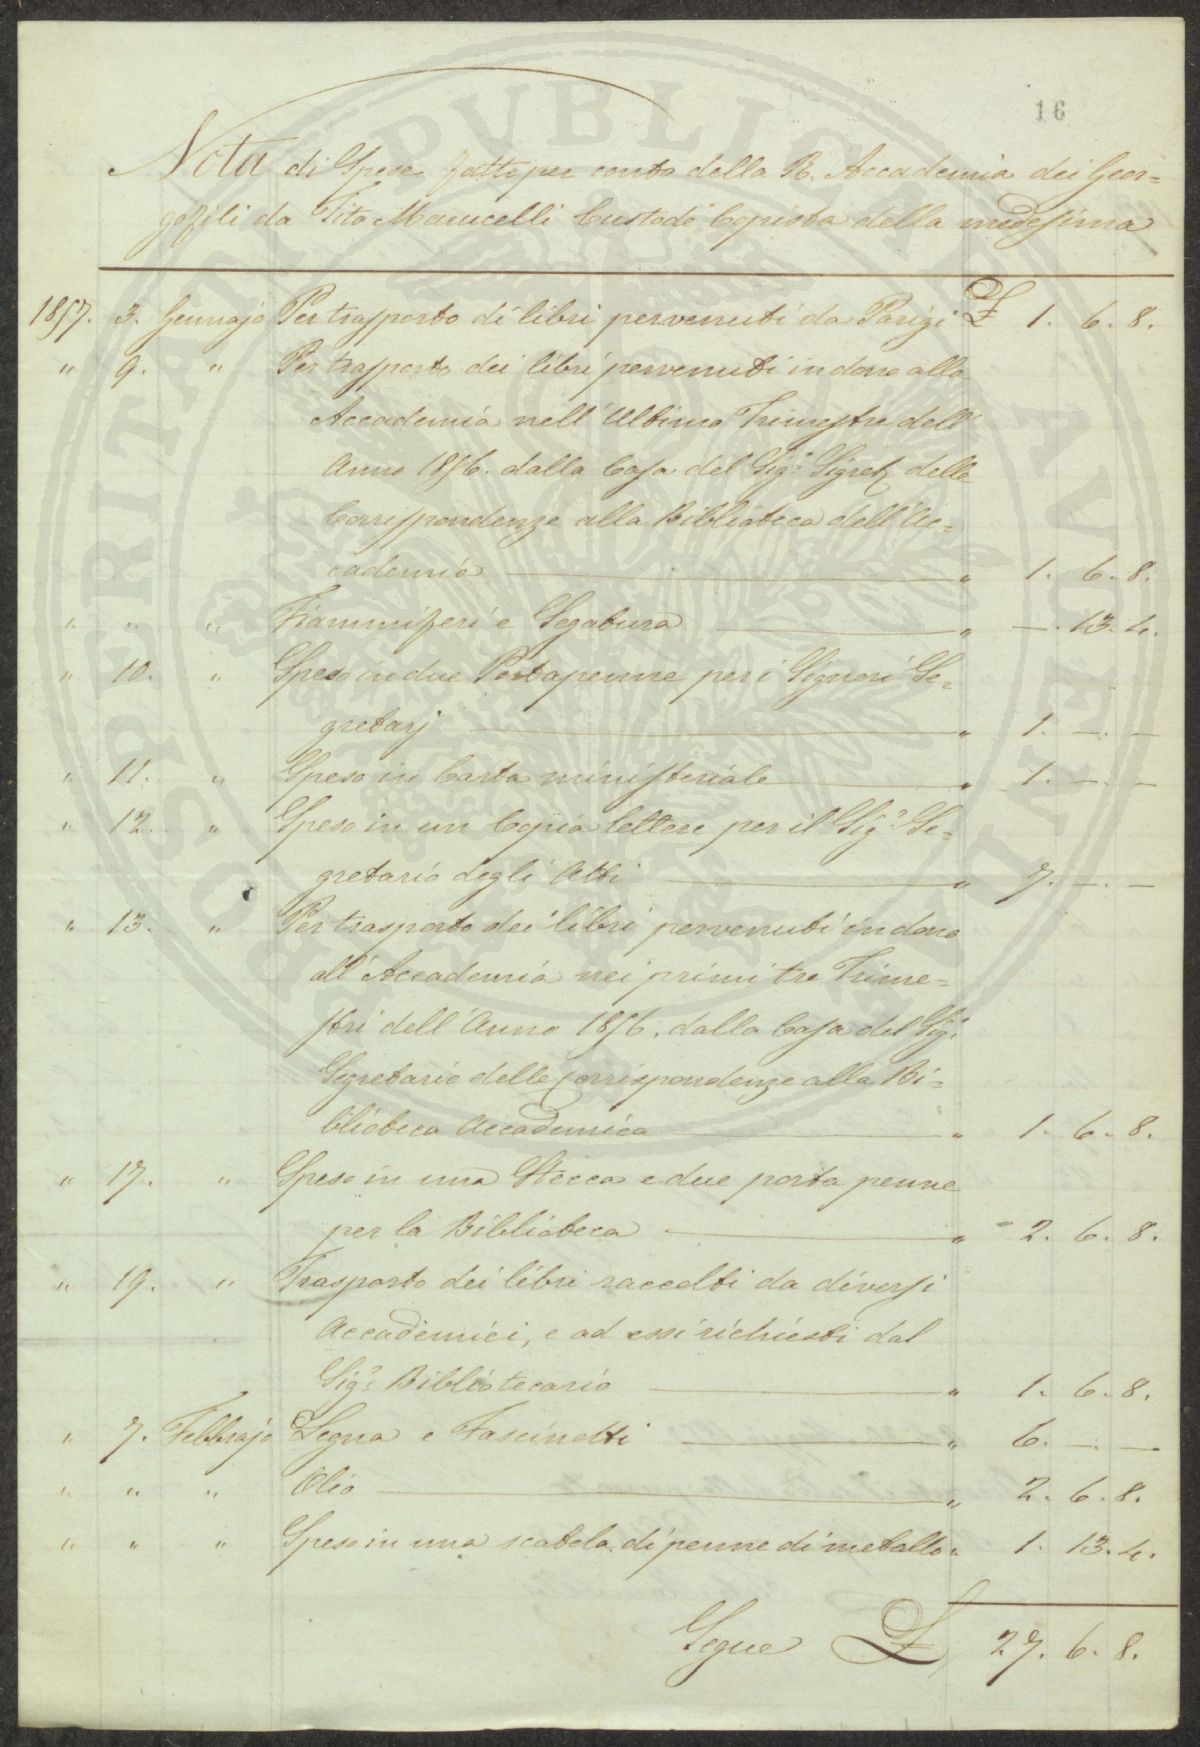 16
Nota di Spese fatte per conto della R. Accademia dei Geor=
gofili da Tito Marucelli Custode Copista della medesima
1857. 3. Gennajo Per trasporto di libri pervenuti da Parigi £ 1. 6. 8.
" 9. " Per trasporto dei libri pervenuti in dono alla
Accademia nell'Ultimo Trimestre dell'
Anno 1856. dalla Casa del Sig.r Segret. delle
Corrispondenze alla Biblioteca dell'Ac=
cademia " 1. 6. 8.
" " " Fiammiferi e Segatura " —. 13. 4.
" 10. " Speso in due Portapenne per i Signori Se=
gretarj " 1. —. —
" 11. " Speso in Carta ministeriale " 1. —. —
" 12. " Speso in un Copia lettere per il Sig.r Se=
gretario degli Atti " 7. —. —
" 13. " Per trasporto dei libri pervenuti in dono
all'Accademia nei primi tre Trime=
stri dell'Anno 1856. dalla Casa del Sig.r
Segretario delle Corrispondenze alla Bi=
blioteca Accademica " 1. 6. 8.
" 17. " Speso in una Stecca e due porta penne
per la Biblioteca " 2. 6. 8.
" 19. " Trasporto dei libri raccolti da diversi
Accademici, e ad essi richiesti dal
Sig.r Bibliotecario " 1. 6. 8.
" 7. Febbrajo Legna e Fascinotti " 6. —. —
" " " Olio " 2. 6. 8.
" " " Speso in una scatola di penne di metallo " 1. 13. 4.
Segue £ 27. 6. 8.
PROSPERITATI PUBLICAE AUGENDAE